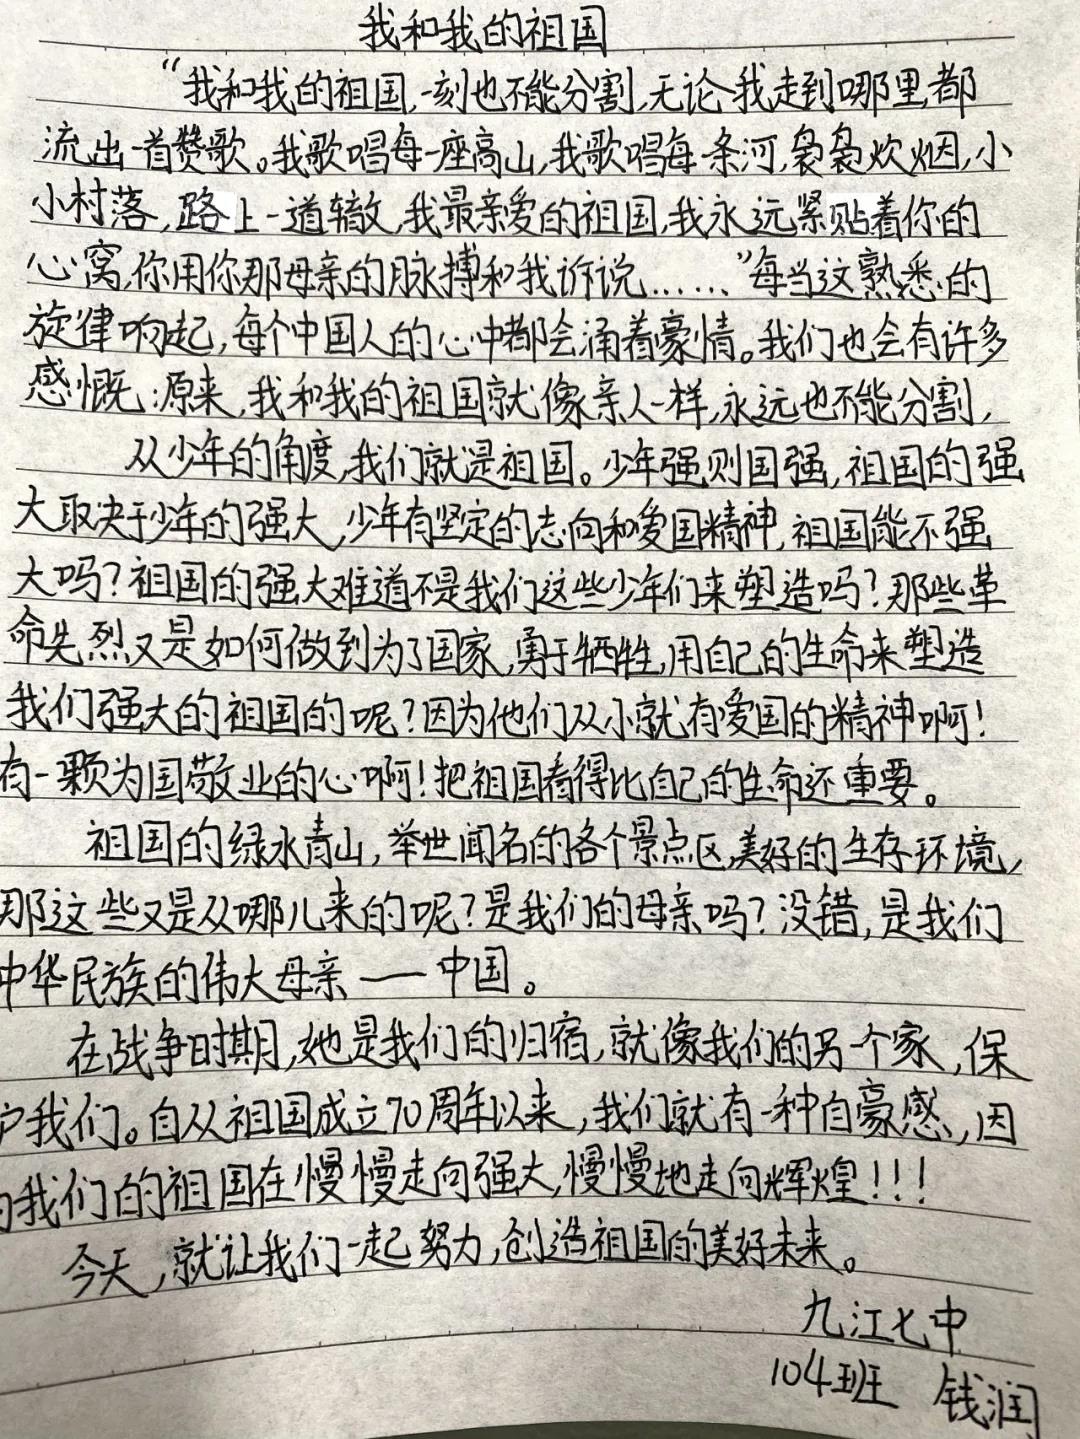 我和我的祖国
“我和我的祖国,一刻也不能分割,无论我走到哪里都
流出一首赞歌。我歌唱每一座高山,我歌唱每条河,袅袅炊烟,小
小村落,路上一道辙,我最亲爱的祖国,我永远紧贴着你的
心窝,你用你那母亲的脉搏和我诉说……”每当这熟悉的
旋律响起,每个中国人的心中都会涌着豪情。我们也会有许多
感慨:原来,我和我的祖国就像亲人一样,永远也不能分割,
从少年的角度,我们就是祖国。少年强则国强,祖国的强
大取决于少年的强大,少年有坚定的志向和爱国精神,祖国能不强
大吗?祖国的强大难道不是我们这些少年们来塑造吗?那些革
命先烈又是如何做到为了国家,勇于牺牲,用自己的生命来塑造
我们强大的祖国的呢?因为他们从小就有爱国的精神啊!
有一颗为国敬业的心啊!把祖国看得比自己的生命还重要。
祖国的绿水青山,举世闻名的各个景点区,美好的生存环境,
那这些又是从哪儿来的呢?是我们的母亲吗?没错,是我们
中华民族的伟大母亲——中国。
在战争时期,她是我们的归宿,就像我们的另一个家,保
护我们。自从祖国成立70周年以来,我们就有一种自豪感,因
为我们的祖国在慢慢走向强大,慢慢地走向辉煌!!!
今天,就让我们一起努力,创造祖国的美好未来。
九江七中
104班 钱润